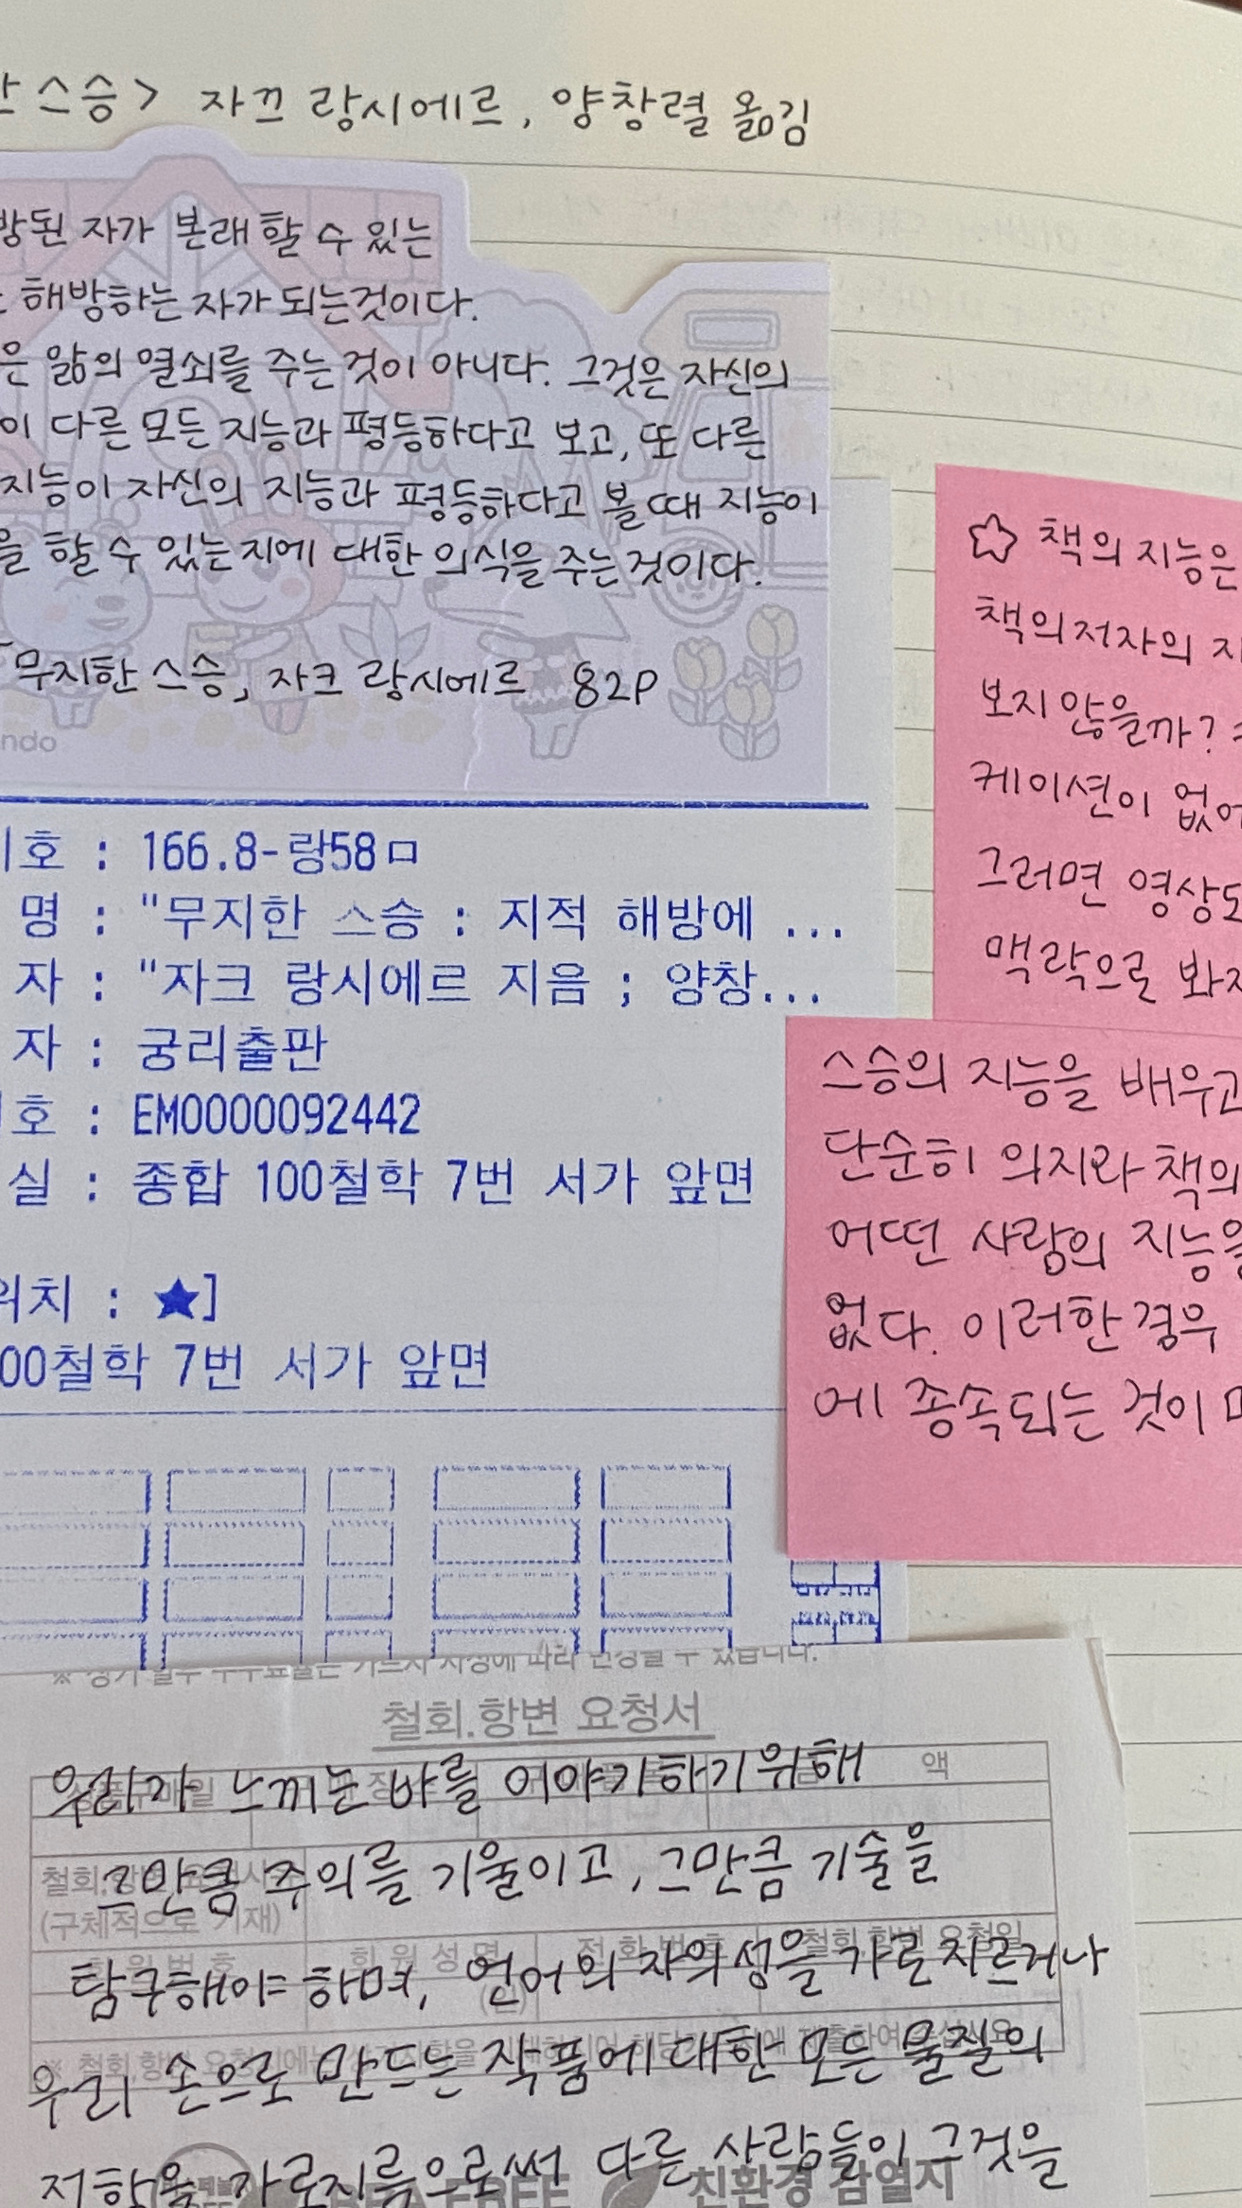 스승> 자끄 랑시에르, 양창렬 옮김
방된 자가 본래 할 수 있는
해방하는 자가 되는것이다.
은 앎의 열쇠를 주는 것이 아니다. 그것은 자신의
이 다른 모든 지능과 평등하다고 보고, 또 다른
지능이 자신의 지능과 평등하다고 볼 때 지능이
을 할 수 있는지에 대한 의식을 주는것이다.
「무지한 스승」, 자크 랑시에르 82P
ndo
호 : 166.8-랑58ㅁ
명 : "무지한 스승 : 지적 해방에 ...
자 : "자크 랑시에르 지음 ; 양창...
자 : 궁리출판
호 : EM0000092442
실 : 종합 100철학 7번 서가 앞면
위치 : ★]
00철학 7번 서가 앞면
☆ 책의 지능은
책의저자의 지
보지 않을까?
케이션이 없어
그러면 영상도
맥락으로 봐지
스승의 지능을 배우고
단순히 의지와 책의
어떤 사람의 지능을
없다. 이러한 경우
에 종속되는 것이
철회.항변 요청서
액
우리가 느끼는 바를 이야기하기위해
그만큼 주의를 기울이고, 그만큼 기술을
(구체적으로 기재)
회 원 번 호 회 원 성 명 전 화 번 호 철회.항변 요청일
탐구해야 하며, 언어의 자의성을 가로지르거나
우리 손으로 만드는 작품에대한 모든 물질의
저항을 가로지름으로써 다른 사람들이 그것을
FREE 친환경 감열지